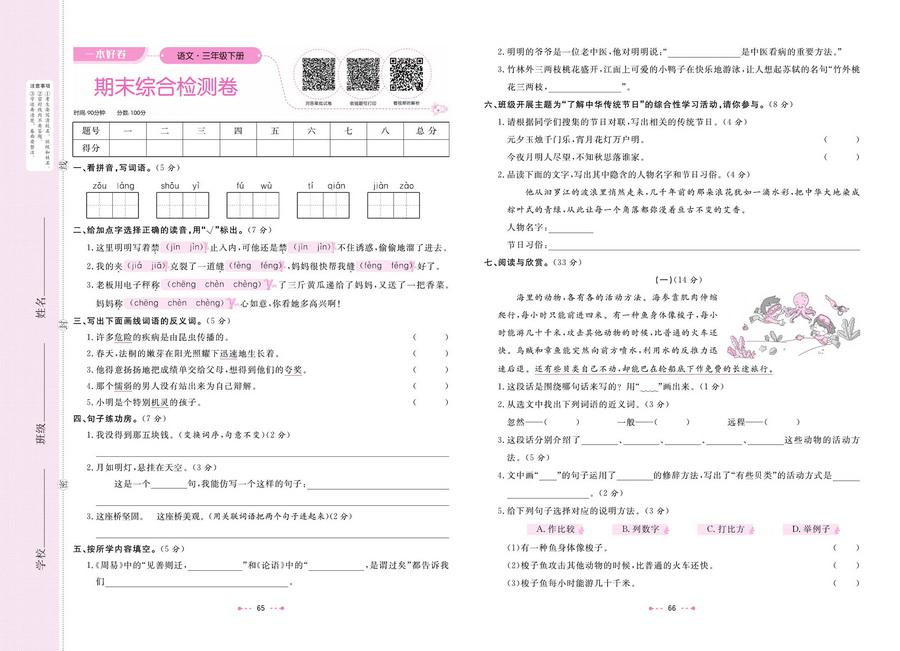 注意事项
①考生要写清校名、班级和姓名。
学校
班级
姓名
密
封
线
一本好卷
语文·三年级下册
期末综合检测卷
时间:90分钟 分数:100分
题号 一 二 三 四 五 六 七 八 总分
得分
一、看拼音,写词语。(5分)
zǒu láng shōu yì fú wù tí qián jiàn zào
二、给加点字选择正确的读音,用“√”标出。(7分)
1.这里明明写着禁(jīn jìn)止入内,可他还是禁(jīn jìn)不住诱惑,偷偷地溜了进去。
2.我的夹(jiá jiā)克裂了一道缝(fèng féng),妈妈很快帮我缝(fèng féng)好了。
3.老板用电子秤称(chēng chèn chèng)了三斤黄瓜递给了妈妈,又送了一把香菜。
妈妈称(chēng chèn chèng)心如意,你看她多高兴啊!
三、写出下面画线词语的反义词。(5分)
1.许多危险的疾病是由昆虫传播的。( )
2.春天,法桐的嫩芽在阳光照耀下迅速地生长着。( )
3.他得意扬扬地把成绩单交给父母,想得到他们的夸奖。( )
4.那个懦弱的男人没有站出来为自己辩解。( )
5.小明是个特别机灵的孩子。( )
四、句子练功房。(7分)
1.我没得到那五块钱。(变换词序,句意不变)(2分)
2.月如明灯,悬挂在天空。(3分)
这是一个________句,我能仿写一个这样的句子:________
3.这座桥坚固。 这座桥美观。(用关联词语把两个句子连起来)(2分)
五、按所学内容填空。(5分)
1.《周易》中的“见善则迁,____________”和《论语》中的“____________,是谓过矣”都告诉我
们________________________。
65
2.明明的爷爷是一位老中医,他对明明说:“________________是中医看病的重要方法。”
3.竹林外三两枝桃花盛开,江面上可爱的小鸭子在快乐地游泳,让人想起苏轼的名句“竹外桃
花三两枝,________________”。
六、班级开展主题为“了解中华传统节日”的综合性学习活动,请你参与。(8分)
1.请根据同学们搜集的节日对联,写出相关的传统节日。(4分)
元夕玉烛千门乐,宵月花灯万户明。( )
今夜月明人尽望,不知秋思落谁家。( )
2.品读下面的文字,写出其中隐含的人物名字和节日习俗。(4分)
他从汨罗江的波浪里悄然走来,几千年前的那朵浪花犹如一滴水彩,把中华大地染成
棕叶式的青绿,从此让每一个角落都弥漫着亘古不变的艾香。
人物名字:________
节日习俗:________
七、阅读与欣赏。(33分)
(一)(14分)
海里的动物,各有各的活动方法。海参靠肌肉伸缩
爬行,每小时只能前进四米。有一种鱼身体像梭子,每小
时能游几十千米,攻击其他动物的时候,比普通的火车还
快。乌贼和章鱼能突然向前方喷水,利用水的反推力迅
速后退。还有些贝类自己不动,却能巴在轮船底下作免费的长途旅行。
1.这段话是围绕哪句话来写的?用“﹏﹏”画出来。(1分)
2.从选文中找出下列词语的近义词。(3分)
忽然——( ) 一般——( ) 远程——( )
3.这段话分别介绍了________、________、________、________这些动物的活动方
法。(5分)
4.文中画“____”的句子运用了________的修辞方法,写出了“有些贝类”的活动方式是______
________________。(2分)
5.给下列句子选择对应的说明方法。(3分)
A.作比较 B.列数字 C.打比方 D.举例子
(1)有一种鱼身体像梭子。( )
(2)梭子鱼攻击其他动物的时候,比普通的火车还快。( )
(3)梭子鱼每小时能游几十千米。( )
66